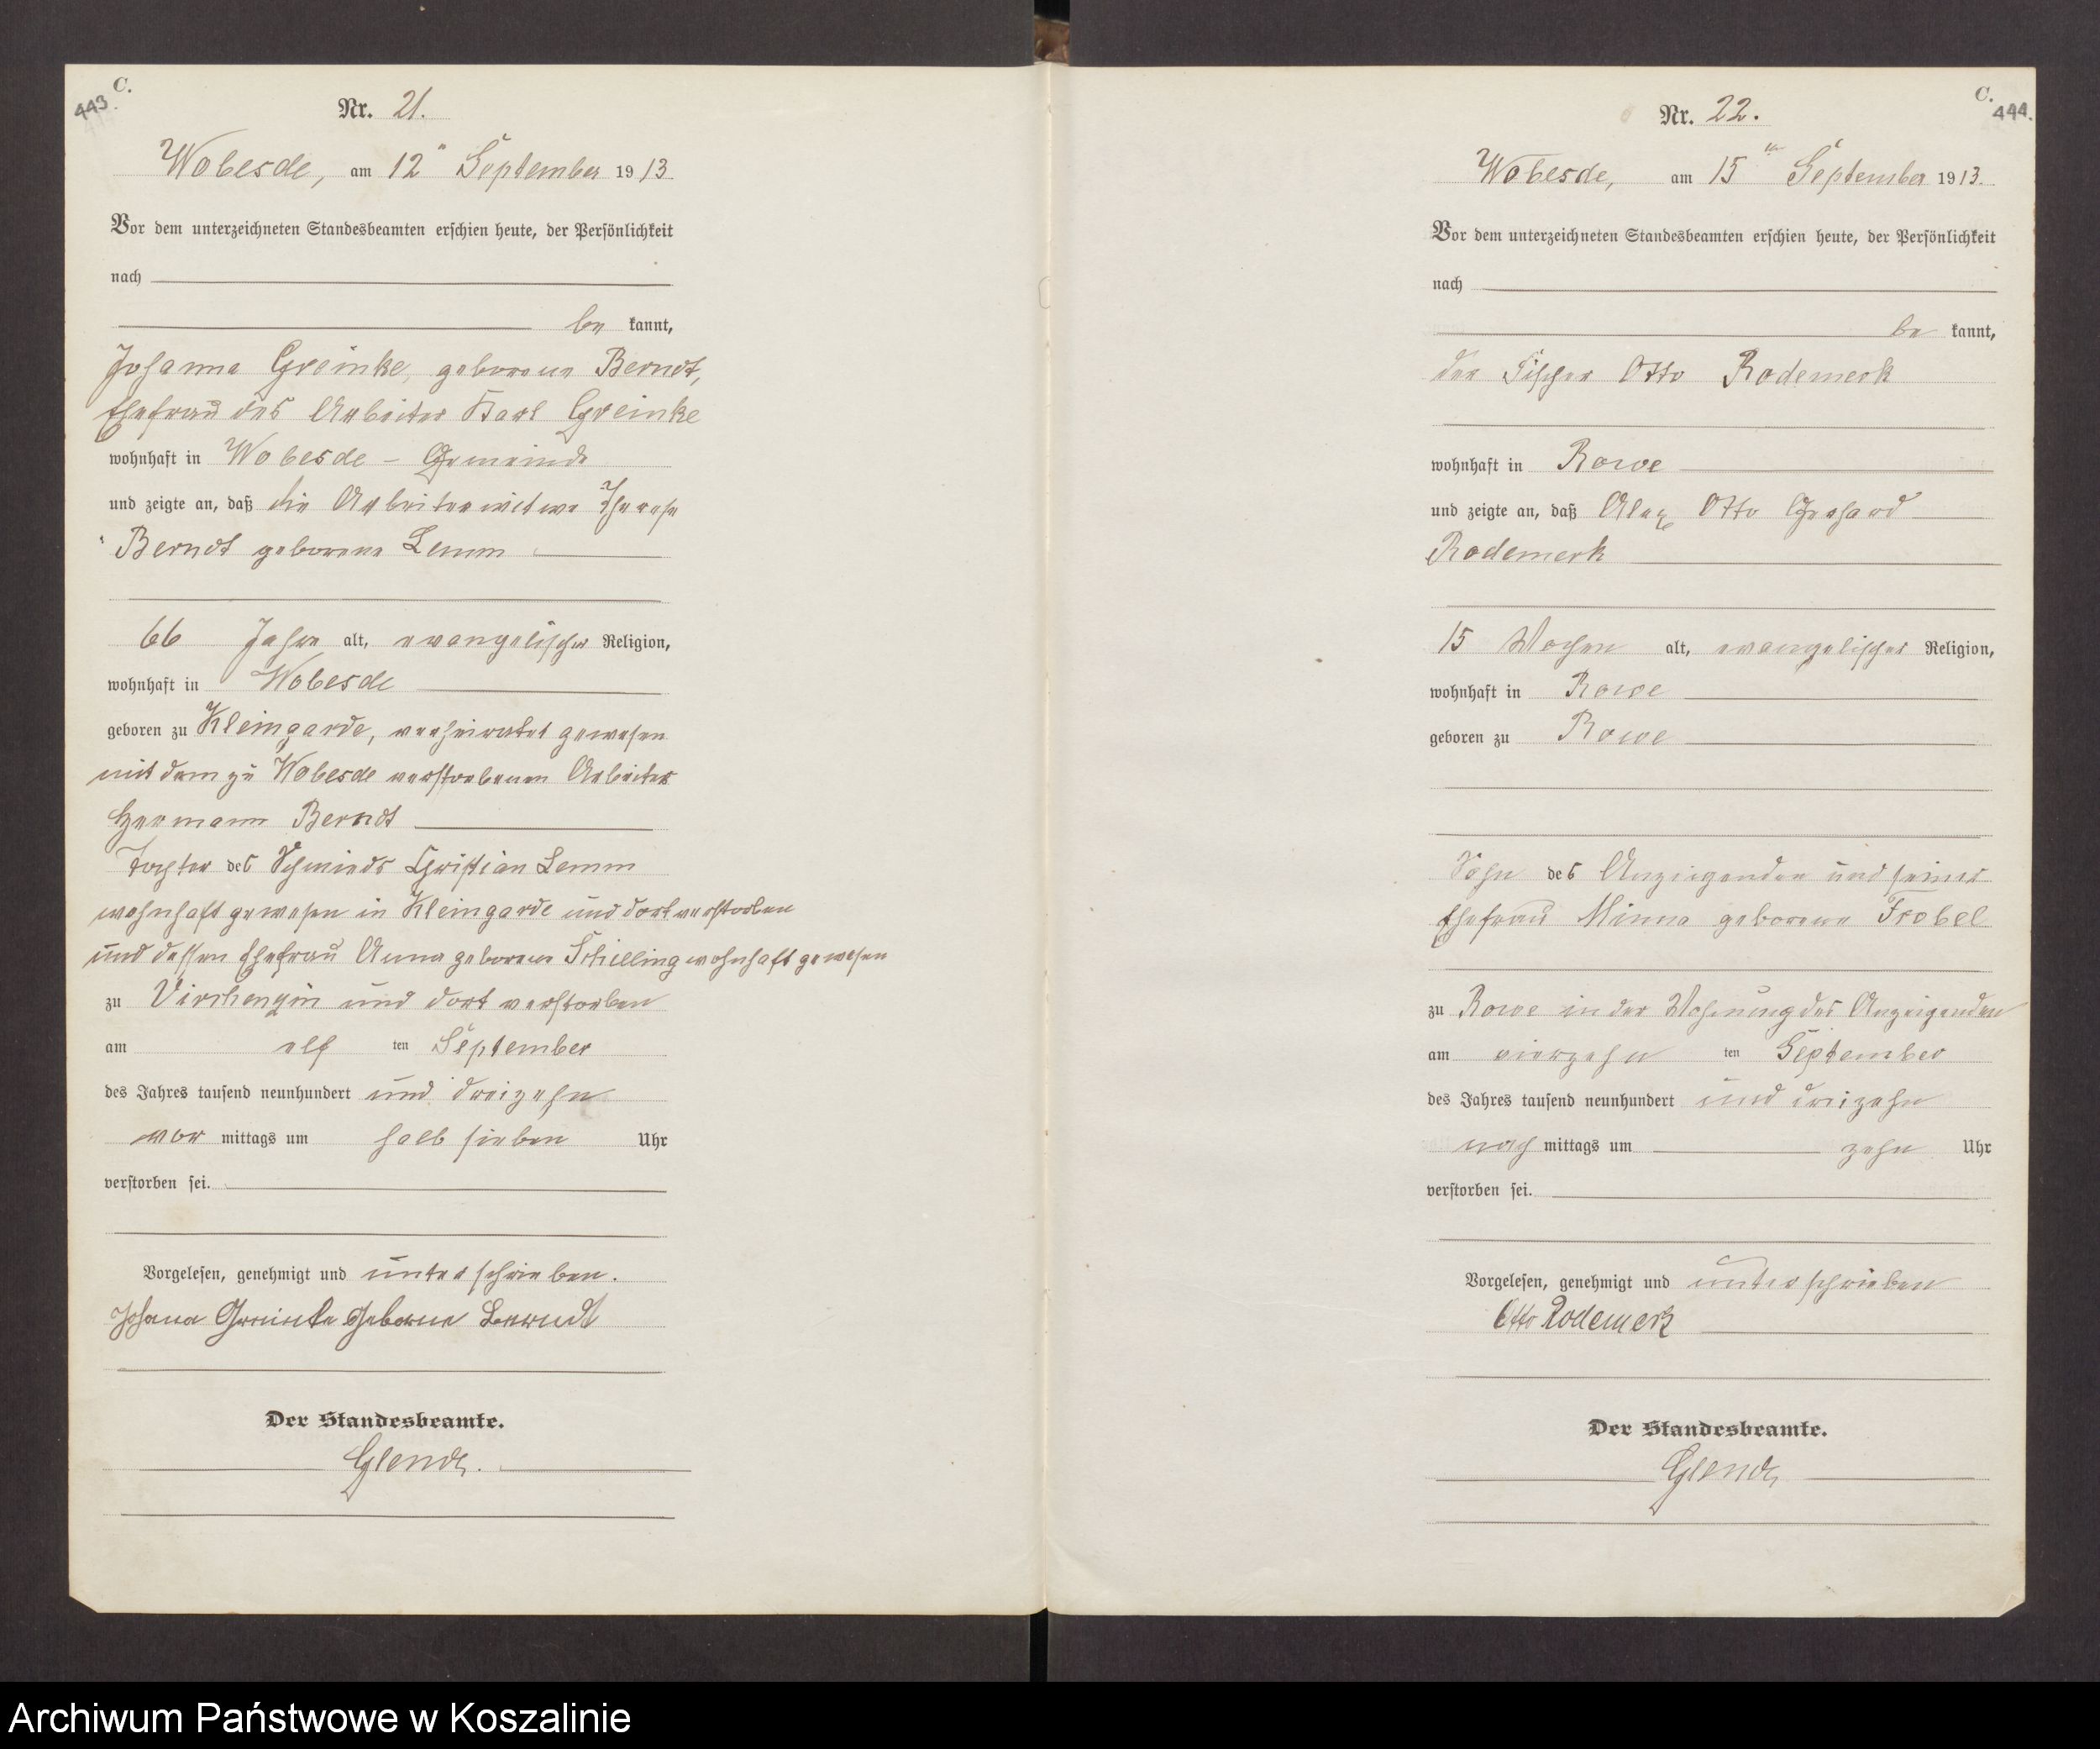 C.
443
Nr. 21.
Wobesde, am 12ⁿ September 1913.
Vor dem unterzeichneten Standesbeamten erschien heute, der Persönlichkeit
nach
be kannt,
Johanna Greinke, geborene Berndt,
Ehefrau des Arbeiter Karl Greinke
wohnhaft in Wobesde - Gemeinde
und zeigte an, daß die Arbeiterwitwe Therese
Berndt geborene Lemm
66 Jahre alt, evangelischer Religion,
wohnhaft in Wobesde
geboren zu Kleingarde, verheiratet gewesen
mit dem zu Wobesde verstorbenen Arbeiter
Hermann Berndt
Tochter des Schmieds Christian Lemm
wohnhaft gewesen in Kleingarde und dort verstorben
und dessen Ehefrau Anna geborene Schilling wohnhaft gewesen
zu Virchenzin und dort verstorben
am elf ten September
des Jahres tausend neunhundert und dreizehn
vor mittags um halb sieben Uhr
verstorben sei.
Vorgelesen, genehmigt und unterschrieben.
Johana Greinke Geborne Berndt
Der Standesbeamte.
C.
444.
Nr. 22.
Wobesde, am 15ten September 1913.
Vor dem unterzeichneten Standesbeamten erschien heute, der Persönlichkeit
nach
be kannt,
der Fischer Otto Rademerk
wohnhaft in Rowe
und zeigte an, daß Alex Otto Gerhard
Rademerk
15 Wochen alt, evangelischer Religion,
wohnhaft in Rowe
geboren zu Rowe
Sohn des Anzeigenden und seiner
Ehefrau Minna geborene Frobel
zu Rowe in der Wohnung des Anzeigenden
am vierzehn ten September
des Jahres tausend neunhundert und dreizehn
nach mittags um zehn Uhr
verstorben sei.
Vorgelesen, genehmigt und unterschrieben
Otto Rodemerk
Der Standesbeamte.
Archiwum Państwowe w Koszalinie